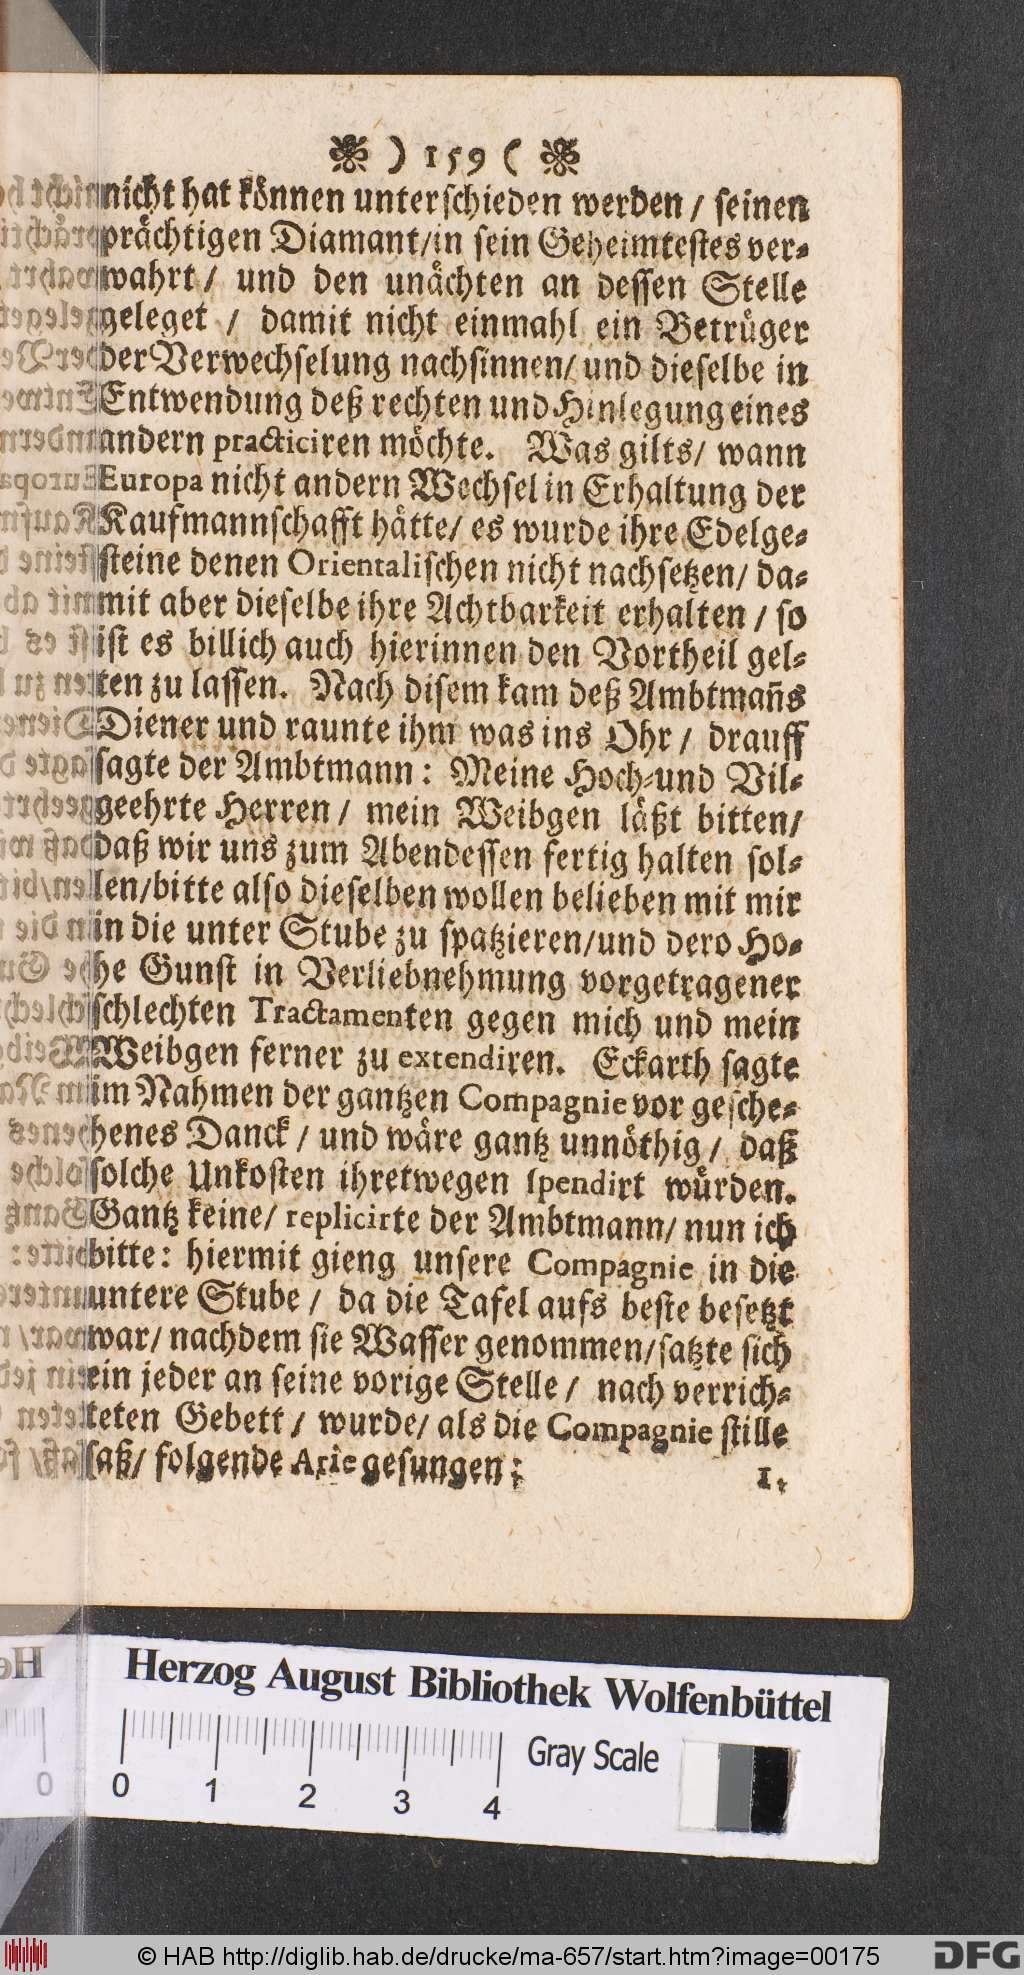 ❧ ) 159 ( ❧
nicht hat können unterschieden werden / seinen
prächtigen Diamant/in sein Geheimtestes ver-
wahrt / und den unächten an dessen Stelle
geleget / damit nicht einmahl ein Betrüger
der Verwechselung nachsinnen/ und dieselbe in
Entwendung deß rechten und Hinlegung eines
andern practiciren möchte. Was gilts/ wann
Europa nicht andern Wechsel in Erhaltung der
Kaufmannschafft hätte/ es wurde ihre Edelge-
steine denen Orientalischen nicht nachsetzen/ da-
mit aber dieselbe ihre Achtbarkeit erhalten / so
ist es billich auch hierinnen den Vortheil gel-
ten zu lassen. Nach disem kam deß Ambtmañs
Diener und raunte ihm was ins Ohr / drauff
sagte der Ambtmann: Meine Hoch-und Vil-
geehrte Herren / mein Weibgen läßt bitten/
daß wir uns zum Abendessen fertig halten sol-
len/bitte also dieselben wollen belieben mit mir
in die unter Stube zu spatzieren/und dero Ho-
he Gunst in Verliebnehmung vorgetragener
schlechten Tractamenten gegen mich und mein
Weibgen ferner zu extendiren. Eckarth sagte
im Nahmen der gantzen Compagnie vor gesche-
henes Danck / und wäre gantz unnöthig / daß
solche Unkosten ihretwegen spendirt würden.
Gantz keine/ replicirte der Ambtmann/ nun ich
bitte: hiermit gieng unsere Compagnie in die
untere Stube / da die Tafel aufs beste besetzt
war/ nachdem sie Wasser genommen/satzte sich
ein jeder an seine vorige Stelle / nach verrich-
teten Gebett / wurde/ als die Compagnie stille
saß/ folgende Arie gesungen:
1.
Herzog August Bibliothek Wolfenbüttel
Gray Scale
0 0 1 2 3 4
© HAB http://diglib.hab.de/drucke/ma-657/start.htm?image=00175
DFG